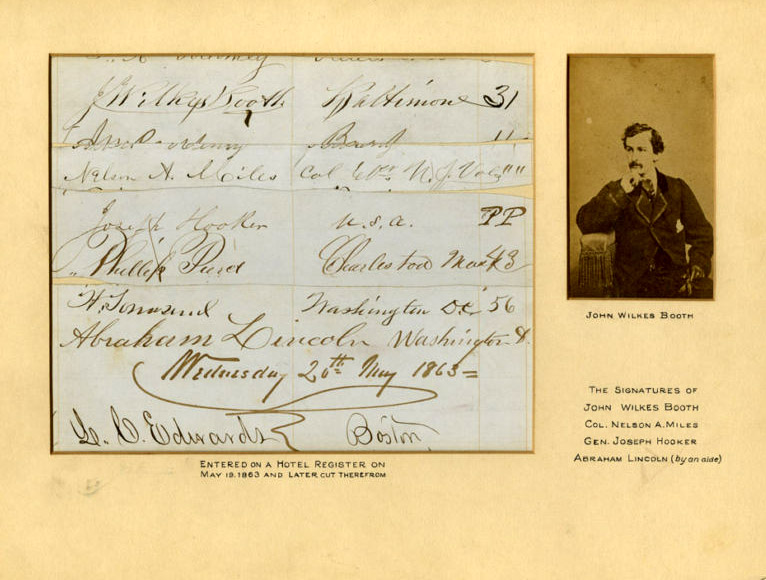 J. Wilkes Booth Baltimore 31
Nelson A. Miles Col 61st N.Y. Vols " "
Joseph Hooker U.S.A. PP
Charlestown Mass 43
H. Townsend Washington D.C. 56
Abraham Lincoln Washington D.
Wednesday 20th May 1863 =
L. C. Edwards Boston,
ENTERED ON A HOTEL REGISTER ON
MAY 19, 1863 AND LATER CUT THEREFROM
JOHN WILKES BOOTH
THE SIGNATURES OF
JOHN WILKES BOOTH
COL. NELSON A. MILES
GEN. JOSEPH HOOKER
ABRAHAM LINCOLN (by an aide)